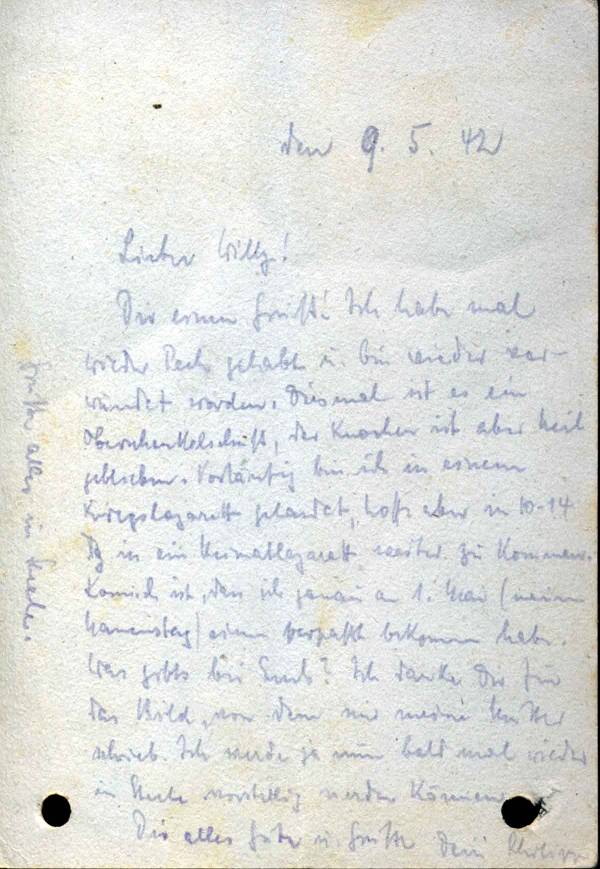 den 9. 5. 42
Lieber Willy!
Dir einen Gruß! Ich habe mal
wieder Pech gehabt u. bin wieder ver-
wundet worden. Diesmal ist es ein
Oberschenkelschuß, der Knochen ist aber heil
geblieben. Vorläufig bin ich in einem
Kriegslazarett gelandet, hoffe aber in 10-14
Tg in ein Heimatlazarett weiter zu kommen.
Komisch ist, dass ich genau am 1. Mai (meinem
Namenstag) einen verpaßt bekommen habe.
Was gibts bei Euch? Ich danke Dir für
das Bild, von dem mir meine Mutter
schrieb. Ich werde ja nun bald mal wieder
in vorstellig werden können
Dir alles Gute u. Grüße Dein Philipp
Grüße alle in